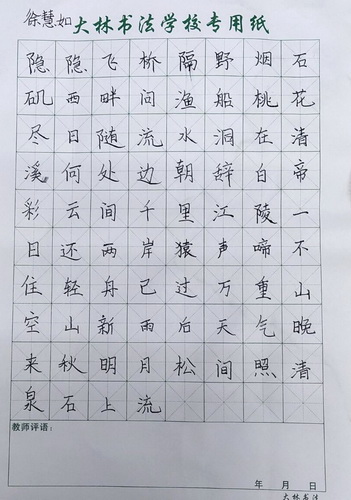 徐慧如
大林书法学校专用纸
隐隐飞桥隔野烟石
矶西畔问渔船桃花
尽日随流水洞在清
溪何处边朝辞白帝
彩云间千里江陵一
日还两岸猿声啼不
住轻舟已过万重山
空山新雨后天气晚
来秋明月松间照清
泉石上流
教师评语：
年 月 日
大林书法